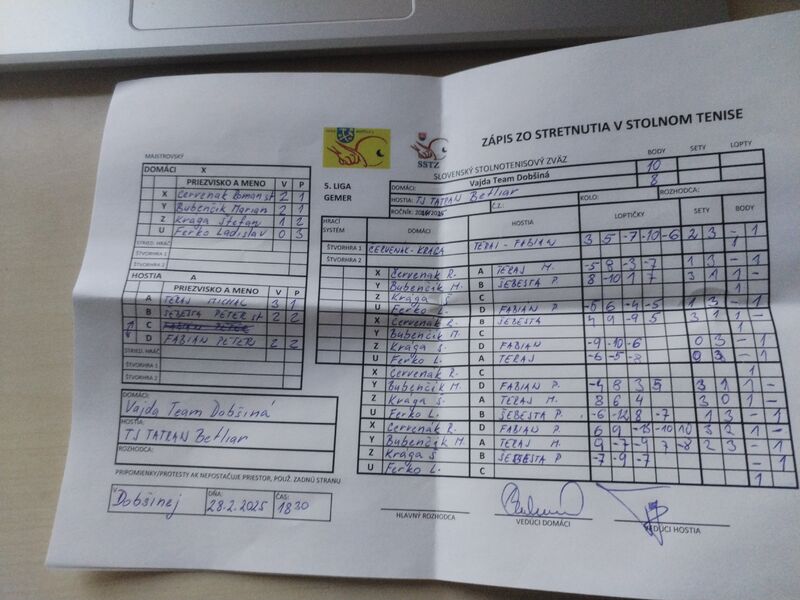 ZÁPIS ZO STRETNUTIA V STOLNOM TENISE
SSTZ
SLOVENSKÝ STOLNOTENISOVÝ ZVÄZ
BODY SETY LOPTY
MAJSTROVSKÝ
DOMÁCI X
PRIEZVISKO A MENO V P
X Červenák Roman st 2 1
Y Bubenčík Marian 2 1
Z Krága Štefan 1 2
U Ferko Ladislav 0 3
STRIED. HRÁČ
ŠTVORHRA 1
ŠTVORHRA 2
HOSTIA A
PRIEZVISKO A MENO V P
A TERAJ MICHAL 3 1
B ŠEBESTA PETER st 2 2
C
D FABIAN PETER 2 2
STRIED. HRÁČ
ŠTVORHRA 1
ŠTVORHRA 2
DOMÁCI:
Vajda Team Dobšiná
HOSTIA:
TJ TATRAN Betliar
ROZHODCA:
PRIPOMIENKY/PROTESTY AK NEPOSTAČUJE PRIESTOR, POUŽ. ZADNÚ STRANU
V Dobšinej DŇA: 28.2.2025 ČAS: 18 30
5. LIGA
GEMER
DOMÁCI: Vajda Team Dobšiná 10
HOSTIA: TJ TATRAN Betliar 8
ROČNÍK: Č.Z. KOLO: ROZHODCA:
HRACÍ
SYSTÉM
DOMÁCI HOSTIA LOPTIČKY SETY BODY
ŠTVORHRA 1 ČERVENÁK - KRÁGA TERAJ - FABIAN 3 5 -7 -10 -6 2 3 - 1
ŠTVORHRA 2 1
X Červenák R. A TERAJ M. -5 8 -3 -7 1 3 - 1
Y Bubenčík M. B ŠEBESTA P. 8 -10 1 7 3 1 1 -
Z Krága Š. C 1
U Ferko L. D FABIAN P. -6 6 -4 -5 1 3 - 1
X Červenák R. B ŠEBESTA 4 9 -9 5 3 1 1 -
Y Bubenčík M. C 1
Z Krága Š. D FABIAN -9 -10 -6 0 3 - 1
U Ferko L. A TERAJ -6 -5 -8 0 3 - 1
X Červenák R. C 1
Y Bubenčík M. D FABIAN P. -4 8 3 5 3 1 1 -
Z Krága Š. A TERAJ M. 8 6 4 3 0 1 -
U Ferko L. B ŠEBESTA P. -6 -12 8 -7 1 3 - 1
X Červenák R. D FABIAN P. 6 9 -13 -10 10 3 2 1 -
Y Bubenčík M. A TERAJ M. 9 -7 -9 7 -8 2 3 - 1
Z Krága Š B ŠEBESTA P -7 -9 -7 - 1
U Ferko L. C 1
HLAVNÝ ROZHODCA
VEDÚCI DOMÁCI
VEDÚCI HOSTIA